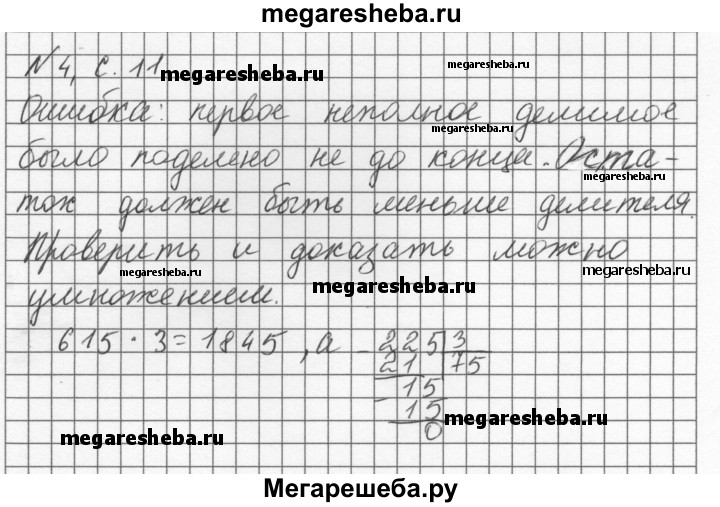 megaresheba.ru
№4, с. 11
megaresheba.ru
megaresheba.ru
Ошибка: первое неполное делимое
megaresheba.ru
было поделено не до конца. Оста-
megaresheba.ru
ток должен быть меньше делителя.
Проверить и доказать можно
megaresheba.ru
megaresheba.ru
умножением.
megaresheba.ru
615 · 3 = 1845, а - 225 3
21 75
- 15
15
0
megaresheba.ru
megaresheba.ru
Мегарешеба.ру